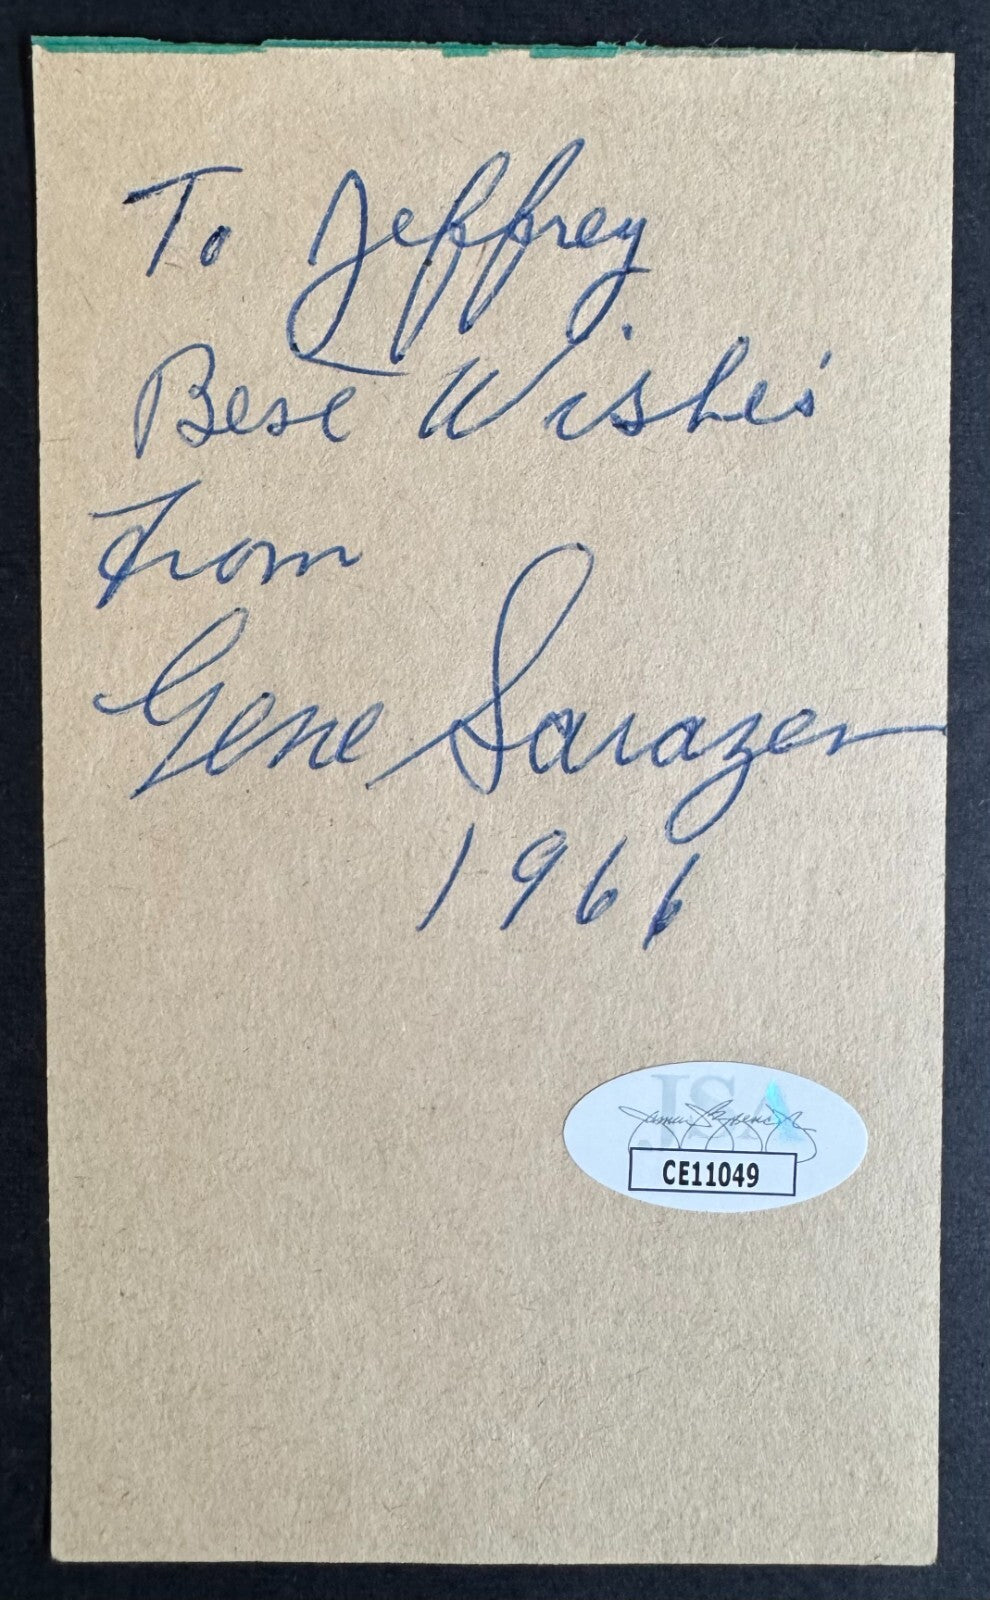 To Jeffrey
Best Wishes
From
Gene Sarazen
1966
JSA
CE11049